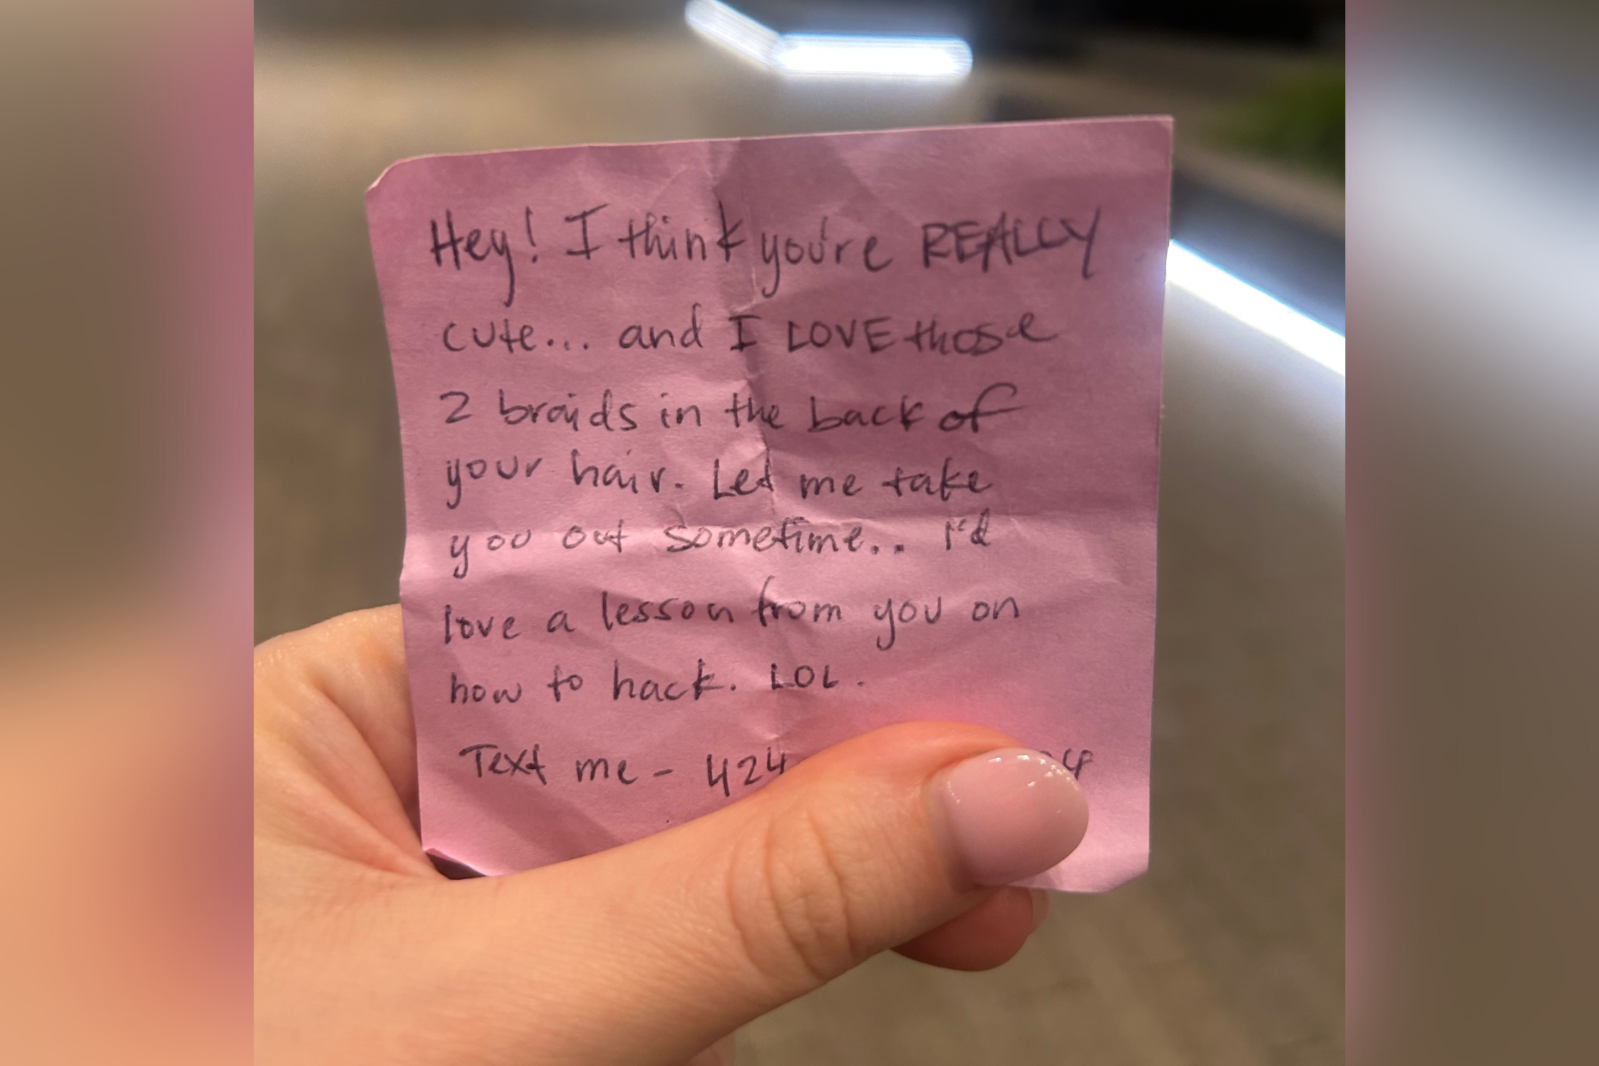 Hey! I think you're REALLY
cute... and I LOVE those
2 braids in the back of
your hair. Let me take
you out sometime.. I'd
love a lesson from you on
how to hack. LOL.
Text me - 424